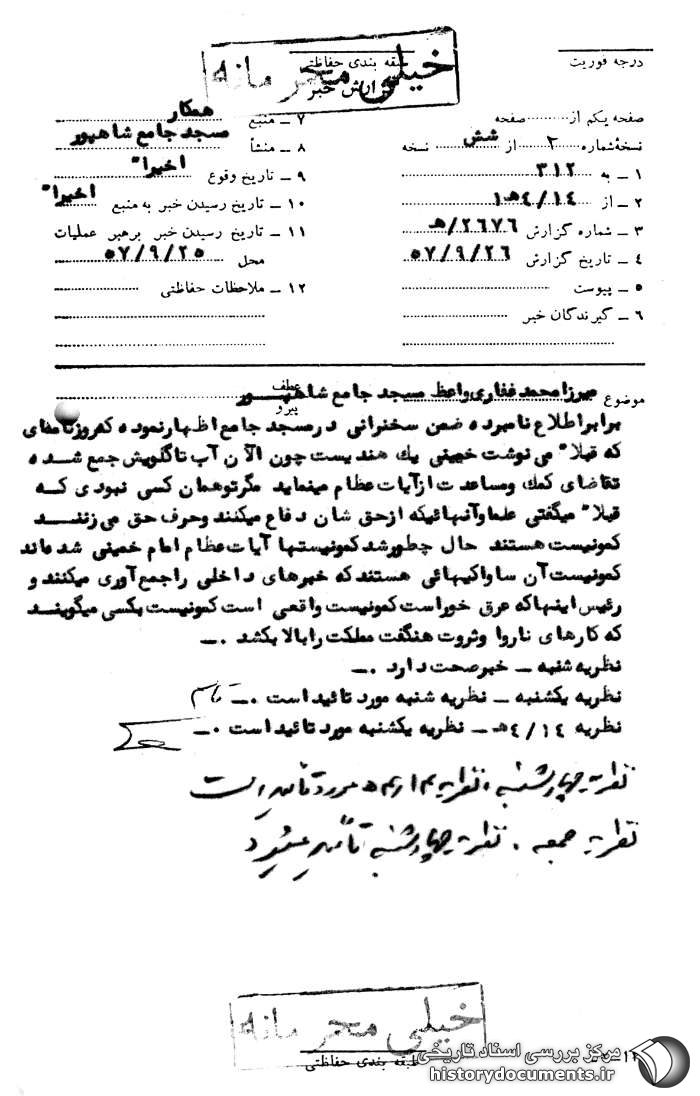 خیلی محرمانه
درجه فوریت
طبقه بندی حفاظتی
گزارش خبر
صفحه یکم از ............ صفحه
نسخهٔ شماره ۲ از شش نسخه
۱ ــ به ۳۱۲
۲ ــ از ۱۴/۴ه۱
۳ ــ شماره گزارش ۲۶۷۶/ه
۴ ــ تاریخ گزارش ۵۷/۹/۲۶
۵ ــ پیوست
۶ ــ گیرندگان خبر
۷ ــ منبع همکار
۸ ــ منشأ مسجد جامع شاهپور
۹ ــ تاریخ وقوع اخیرا"
۱۰ ــ تاریخ رسیدن خبر به منبع اخیرا"
۱۱ ــ تاریخ رسیدن خبر برهبر عملیات
محل ۵۷/۹/۲۵
۱۲ ــ ملاحظات حفاظتی
موضوع میرزا محمد غفاری واعظ مسجد جامع شاهپور
عطف
پیرو
برابر اطلاع نامبرده ضمن سخنرانی در مسجد جامع اظهار نموده که روزنامه‌ای
که قبلا" می نوشت خمینی یك هندیست چون الآن آب تا گلویش جمع شده
تقاضای کمك ومساعدت از آیات عظام مینماید مگر تو همان کسی نبودی که
قبلا" میگفتی علما وآنهائیکه از حق شان دفاع میکنند وحرف حق می زننــد
کمونیست هستند حال چطور شد کمونیستها آیات عظام امام خمینی شده‌اند
کمونیست آن ساواکیهائی هستند که خبرهای داخلی را جمع آوری میکنند و
رئیس اینها که عرق خور است کمونیست واقعی است کمونیست بکسی میگوینــد
که کارهای ناروا وثروت هنگفت مملکت را بالا بکشد .ــ
نظریه شنبه ــ خبر صحت دارد .ــ
نظریه یکشنبه ــ نظریه شنبه مورد تائید است .ــ
نظریه ۱۴/۴ه ــ نظریه یکشنبه مورد تائید است .ــ
نظریه چهارشنبه . نظریه ۱۴/۴ه مورد تائید است
نظریه جمعه . نظریه چهارشنبه تائید میشود
خیلی محرمانه
طبقه بندی حفاظتی
مرکز بررسی اسناد تاریخی
historydocuments.ir